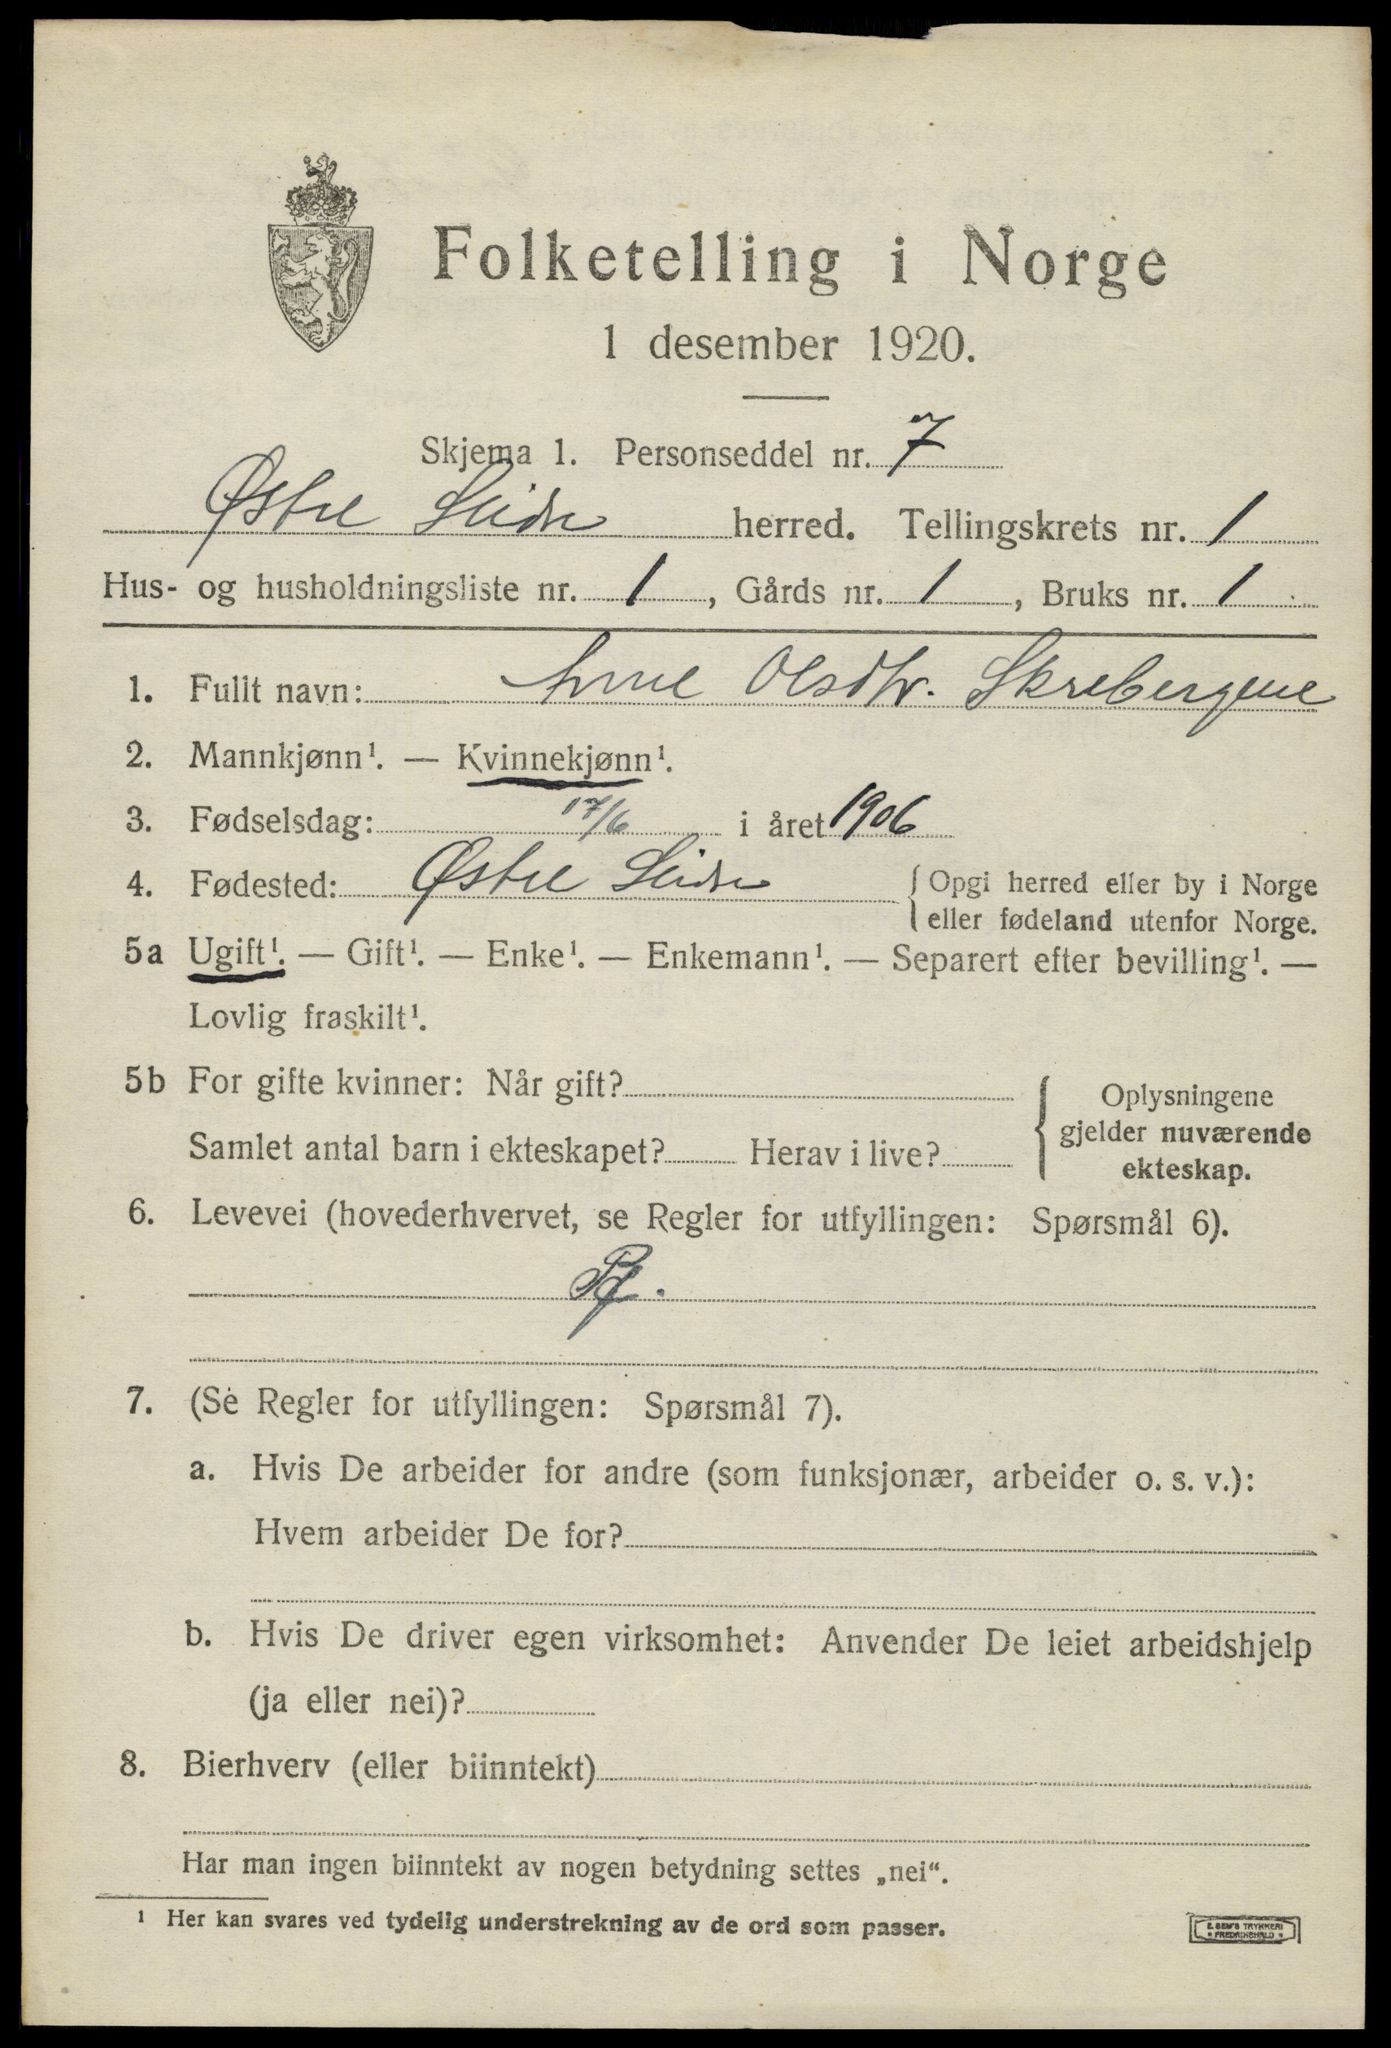 Folketelling i Norge
1 desember 1920.
Skjema 1. Personseddel nr. 7
Østre Slidre herred. Tellingskrets nr. 1
Hus- og husholdningsliste nr. 1, Gårds nr. 1, Bruks nr. 1
1. Fullt navn: Anne Olsdtr. Skrebergene
2. Mannkjønn¹. — Kvinnekjønn¹.
3. Fødselsdag: 17/6 i året 1906
4. Fødested: Østre Slidre { Opgi herred eller by i Norge
eller fødeland utenfor Norge.
5a Ugift¹. — Gift¹. — Enke¹. — Enkemann¹. — Separert efter bevilling¹. —
Lovlig fraskilt¹.
5b For gifte kvinner: Når gift? { Oplysningene
gjelder nuværende
Samlet antal barn i ekteskapet? Herav i live?
ekteskap.
6. Levevei (hovederhvervet, se Regler for utfyllingen: Spørsmål 6).
7. (Se Regler for utfyllingen: Spørsmål 7).
a. Hvis De arbeider for andre (som funksjonær, arbeider o. s. v.):
Hvem arbeider De for?
b. Hvis De driver egen virksomhet: Anvender De leiet arbeidshjelp
(ja eller nei)?
8. Bierhverv (eller biinntekt)
Har man ingen biinntekt av nogen betydning settes „nei“.
¹ Her kan svares ved tydelig understrekning av de ord som passer.
E. SEM'S TRYKKERI
* FREDRIKSHALD *